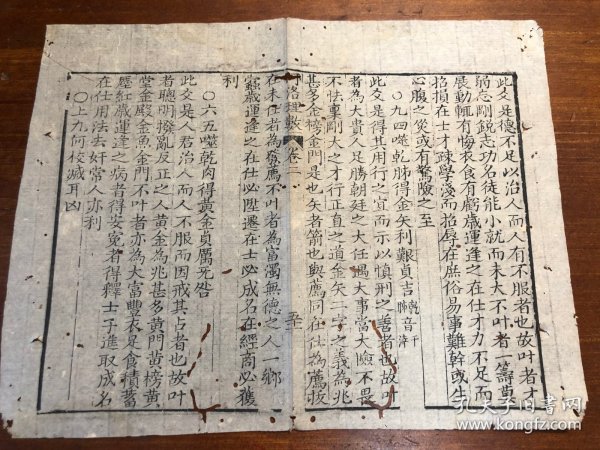 此爻是德不足以治人而人有不服者也故叶者才
弱志剛銳志功名徒能小就而未大不叶者一籌莫
展動輒有悔衣食有虧歲運逢之在仕才力不足而
招損在士才疎學淺而招辱在庶俗易事難幹或生
心腹之災或有驚險之至
○九四噬乾胏得金矢利艱貞吉乾音干
胏音滓
此爻是得其用行之宜而示以慎刑之善者也故叶
者為大貴人足勝朝廷之大任遇大事當大險不畏
不怯秉剛大之才行正直之道金矢二字之義為兆
甚多金榜金門是也矢者箭也與薦同在仕為薦拔
洛理數 卷二
在未仕者為舉薦不叶者為富濁無德之人一鄉
靈歲運逢之在仕必陞遷在士必成名在經商必獲
利
○六五噬乾肉得黃金貞厲旡咎
此爻是人君治人而人不服而因戒其占者也故叶
者聰明撥亂反正之人黃金為兆甚多黃門黃榜黃
堂金殿金魚金門不叶者亦為大富豐衣足食積蓄
歲運逢之病者得安冤者得釋士子進取成名
在仕用法去奸常人亦利
○上九何校滅耳凶
孔夫子旧书网